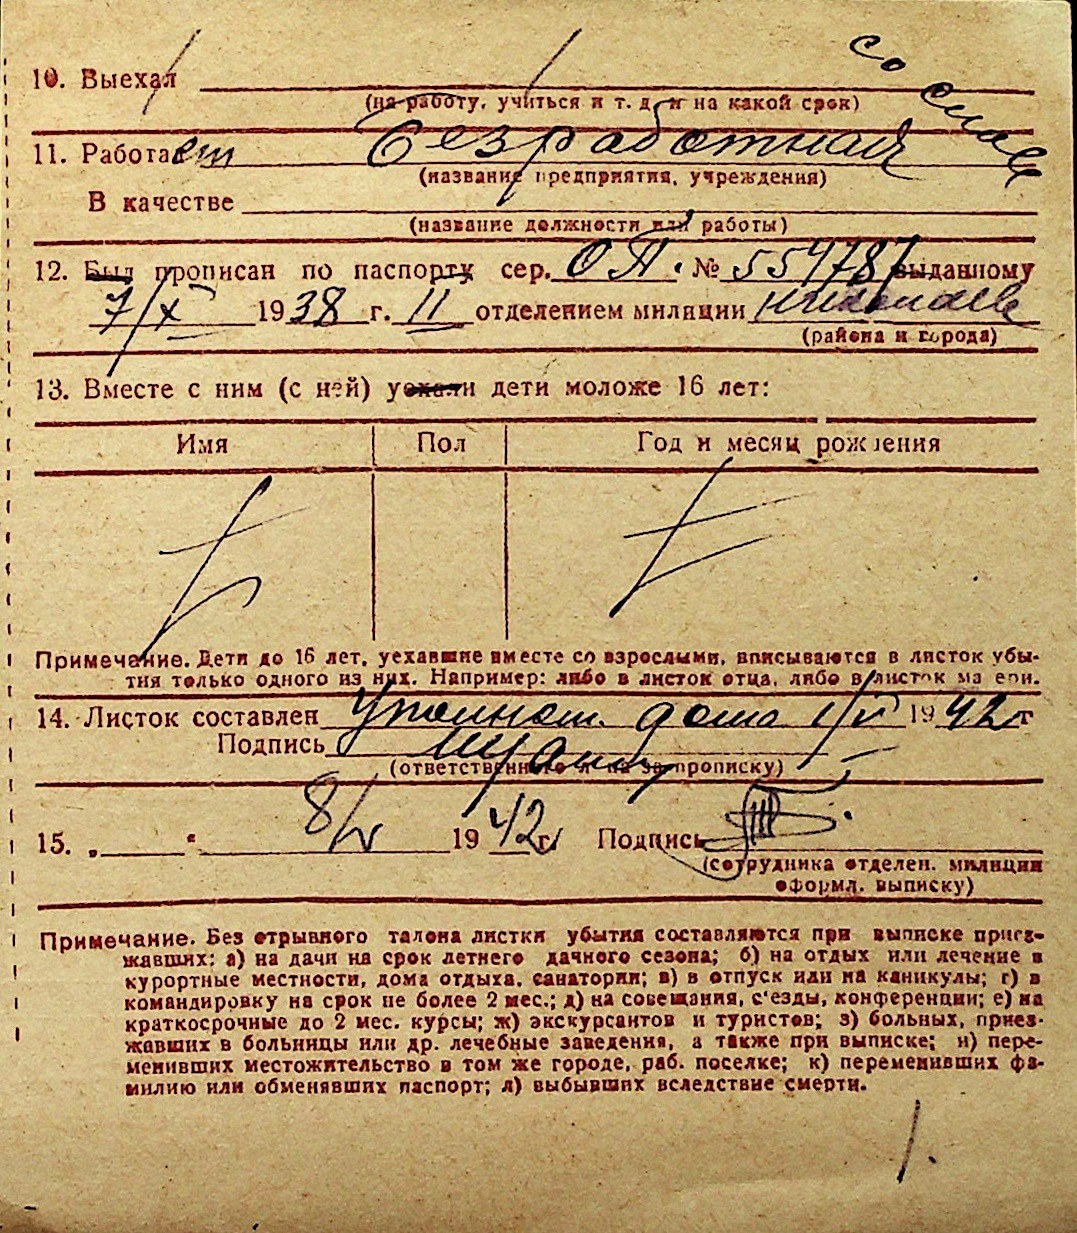 10. Выехал
(на работу, учиться и т. д. и на какой срок)
со слов
11. Работает безработная
(название предприятия, учреждения)
В качестве
(название должности или работы)
12. Был прописан по паспорту сер. ОП. № 554787 выданному
7/X 1938 г. II отделением милиции Николаев
(района и города)
13. Вместе с ним (с ней) уехали дети моложе 16 лет:
Имя Пол Год и месяц рождения
Примечание. Дети до 16 лет, уехавшие вместе со взрослыми, вписываются в листок убы-
тия только одного из них. Например: либо в листок отца, либо в листок матери.
14. Листок составлен Уполном. дома 1/V 1942 г
Подпись
(ответственного лица за прописку)
15. „ “ 8/V 1942 г. Подпись
(сотрудника отделен. милиции
оформл. выписку)
Примечание. Без отрывного талона листки убытия составляются при выписке приез-
жавших: а) на дачи на срок летнего дачного сезона; б) на отдых или лечение в
курортные местности, дома отдыха, санатории; в) в отпуск или на каникулы; г) в
командировку на срок не более 2 мес.; д) на совещания, с'езды, конференции; е) на
краткосрочные до 2 мес. курсы; ж) экскурсантов и туристов; з) больных, приез-
жавших в больницы или др. лечебные заведения, а также при выписке; и) пере-
менивших местожительство в том же городе, раб. поселке; к) переменивших фа-
милию или обменявших паспорт; л) выбывших вследствие смерти.